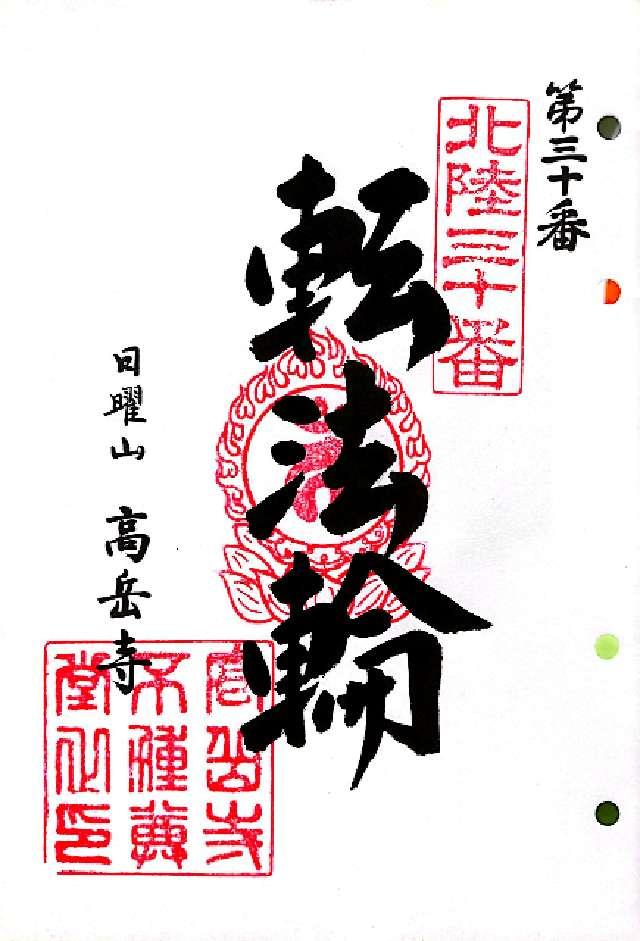 第三十番
北陸三十番
転法輪
日曜山 高岳寺